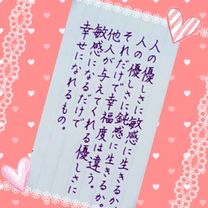 人の優しさに敏感に生きるか
人の優しさに鈍感に生きるか。
それだけで幸福度は違う。
他人が与えてくれる優しさに
敏感になるだけで
幸せになれるもの。